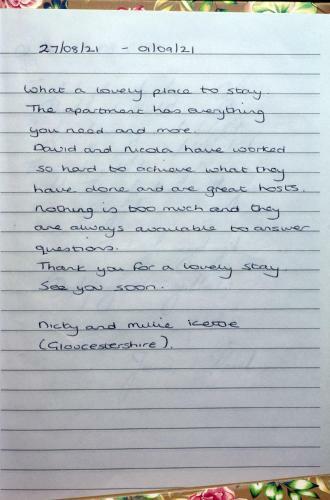 27/08/21 - 01/09/21
What a lovely place to stay.
The apartment has everything
you need and more.
David and Nicola have worked
so hard to achieve what they
have done and are great hosts.
Nothing is too much and they
are always available to answer
questions.
Thank you for a lovely stay.
See you soon.
Nicky and Millie
(Gloucestershire).